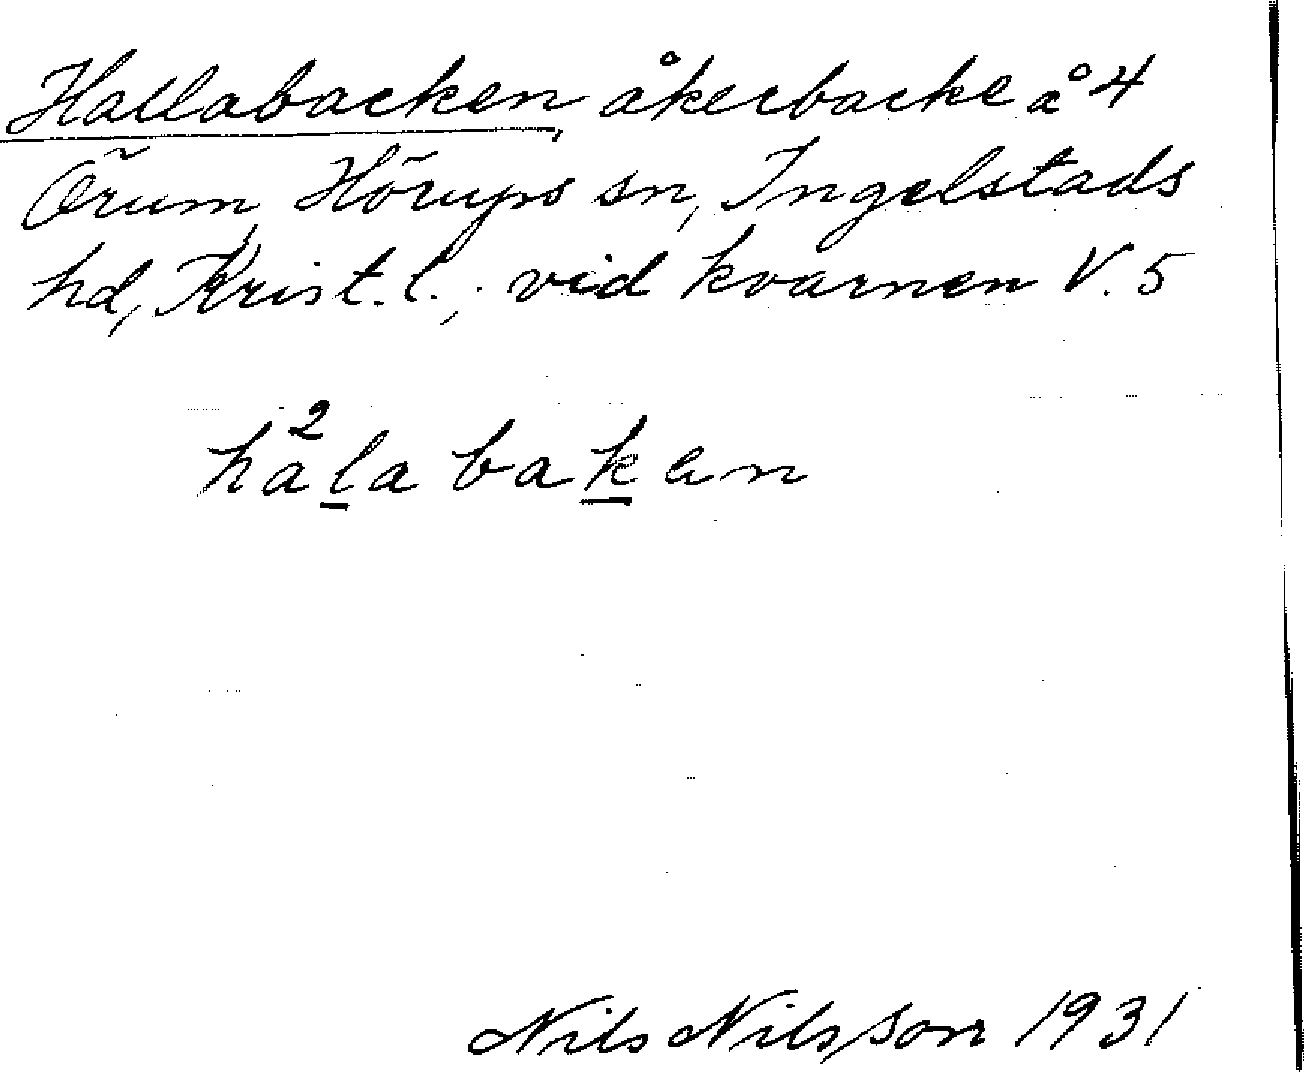 Hallabacken, åkerbacke å 4
Örum, Hörups sn, Ingelstads
hd, Krist. l.; vid kvarnen V. 5
ha²la baken
Nils Nilsson 1931